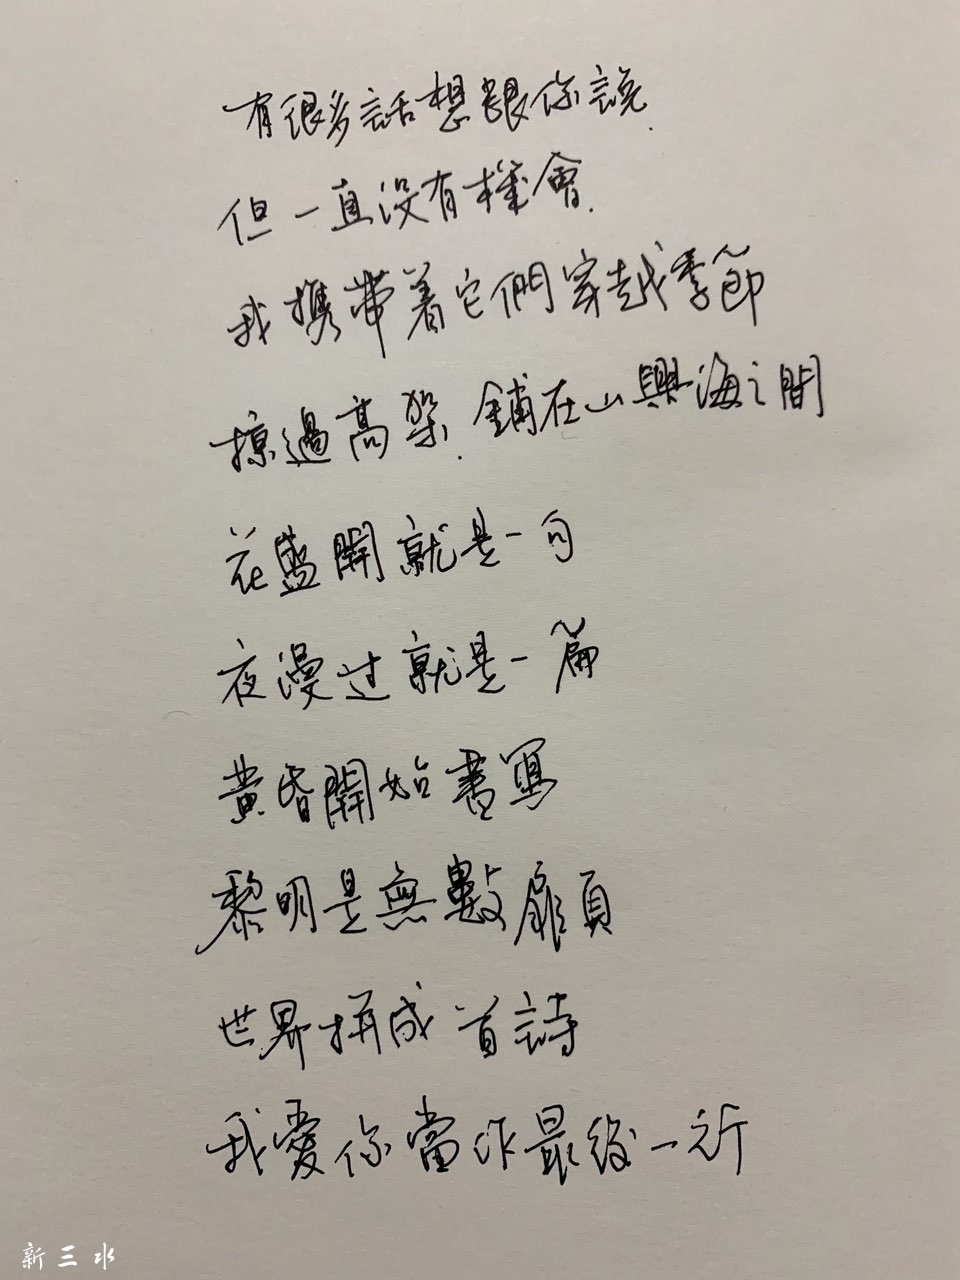 有很多話想跟你説.
但一直没有機會.
我攜帶着它們穿越季節
掠過高架.鋪在山與海之間
花盛開就是一句
夜漫过就是一篇
黄昏開始書寫
黎明是無數扉頁
世界拼成首詩
我愛你當作最後一行
新三水